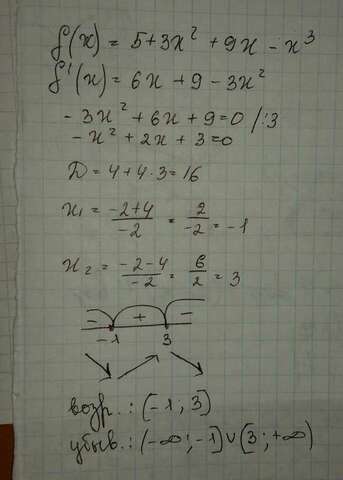 f(x) = 5+3x² + 9x - x³
f'(x) = 6x + 9 - 3x²
- 3x² + 6x + 9 = 0 /:3
- x² + 2x + 3 = 0
D = 4 + 4·3 = 16
x₁ = (-2+4)/(-2) = 2/(-2) = -1
x₂ = (-2-4)/(-2) = 6/2 = 3
- + -
-1 3
возр.: (-1; 3)
убыв.: (-∞; -1] ∪ [3; +∞)